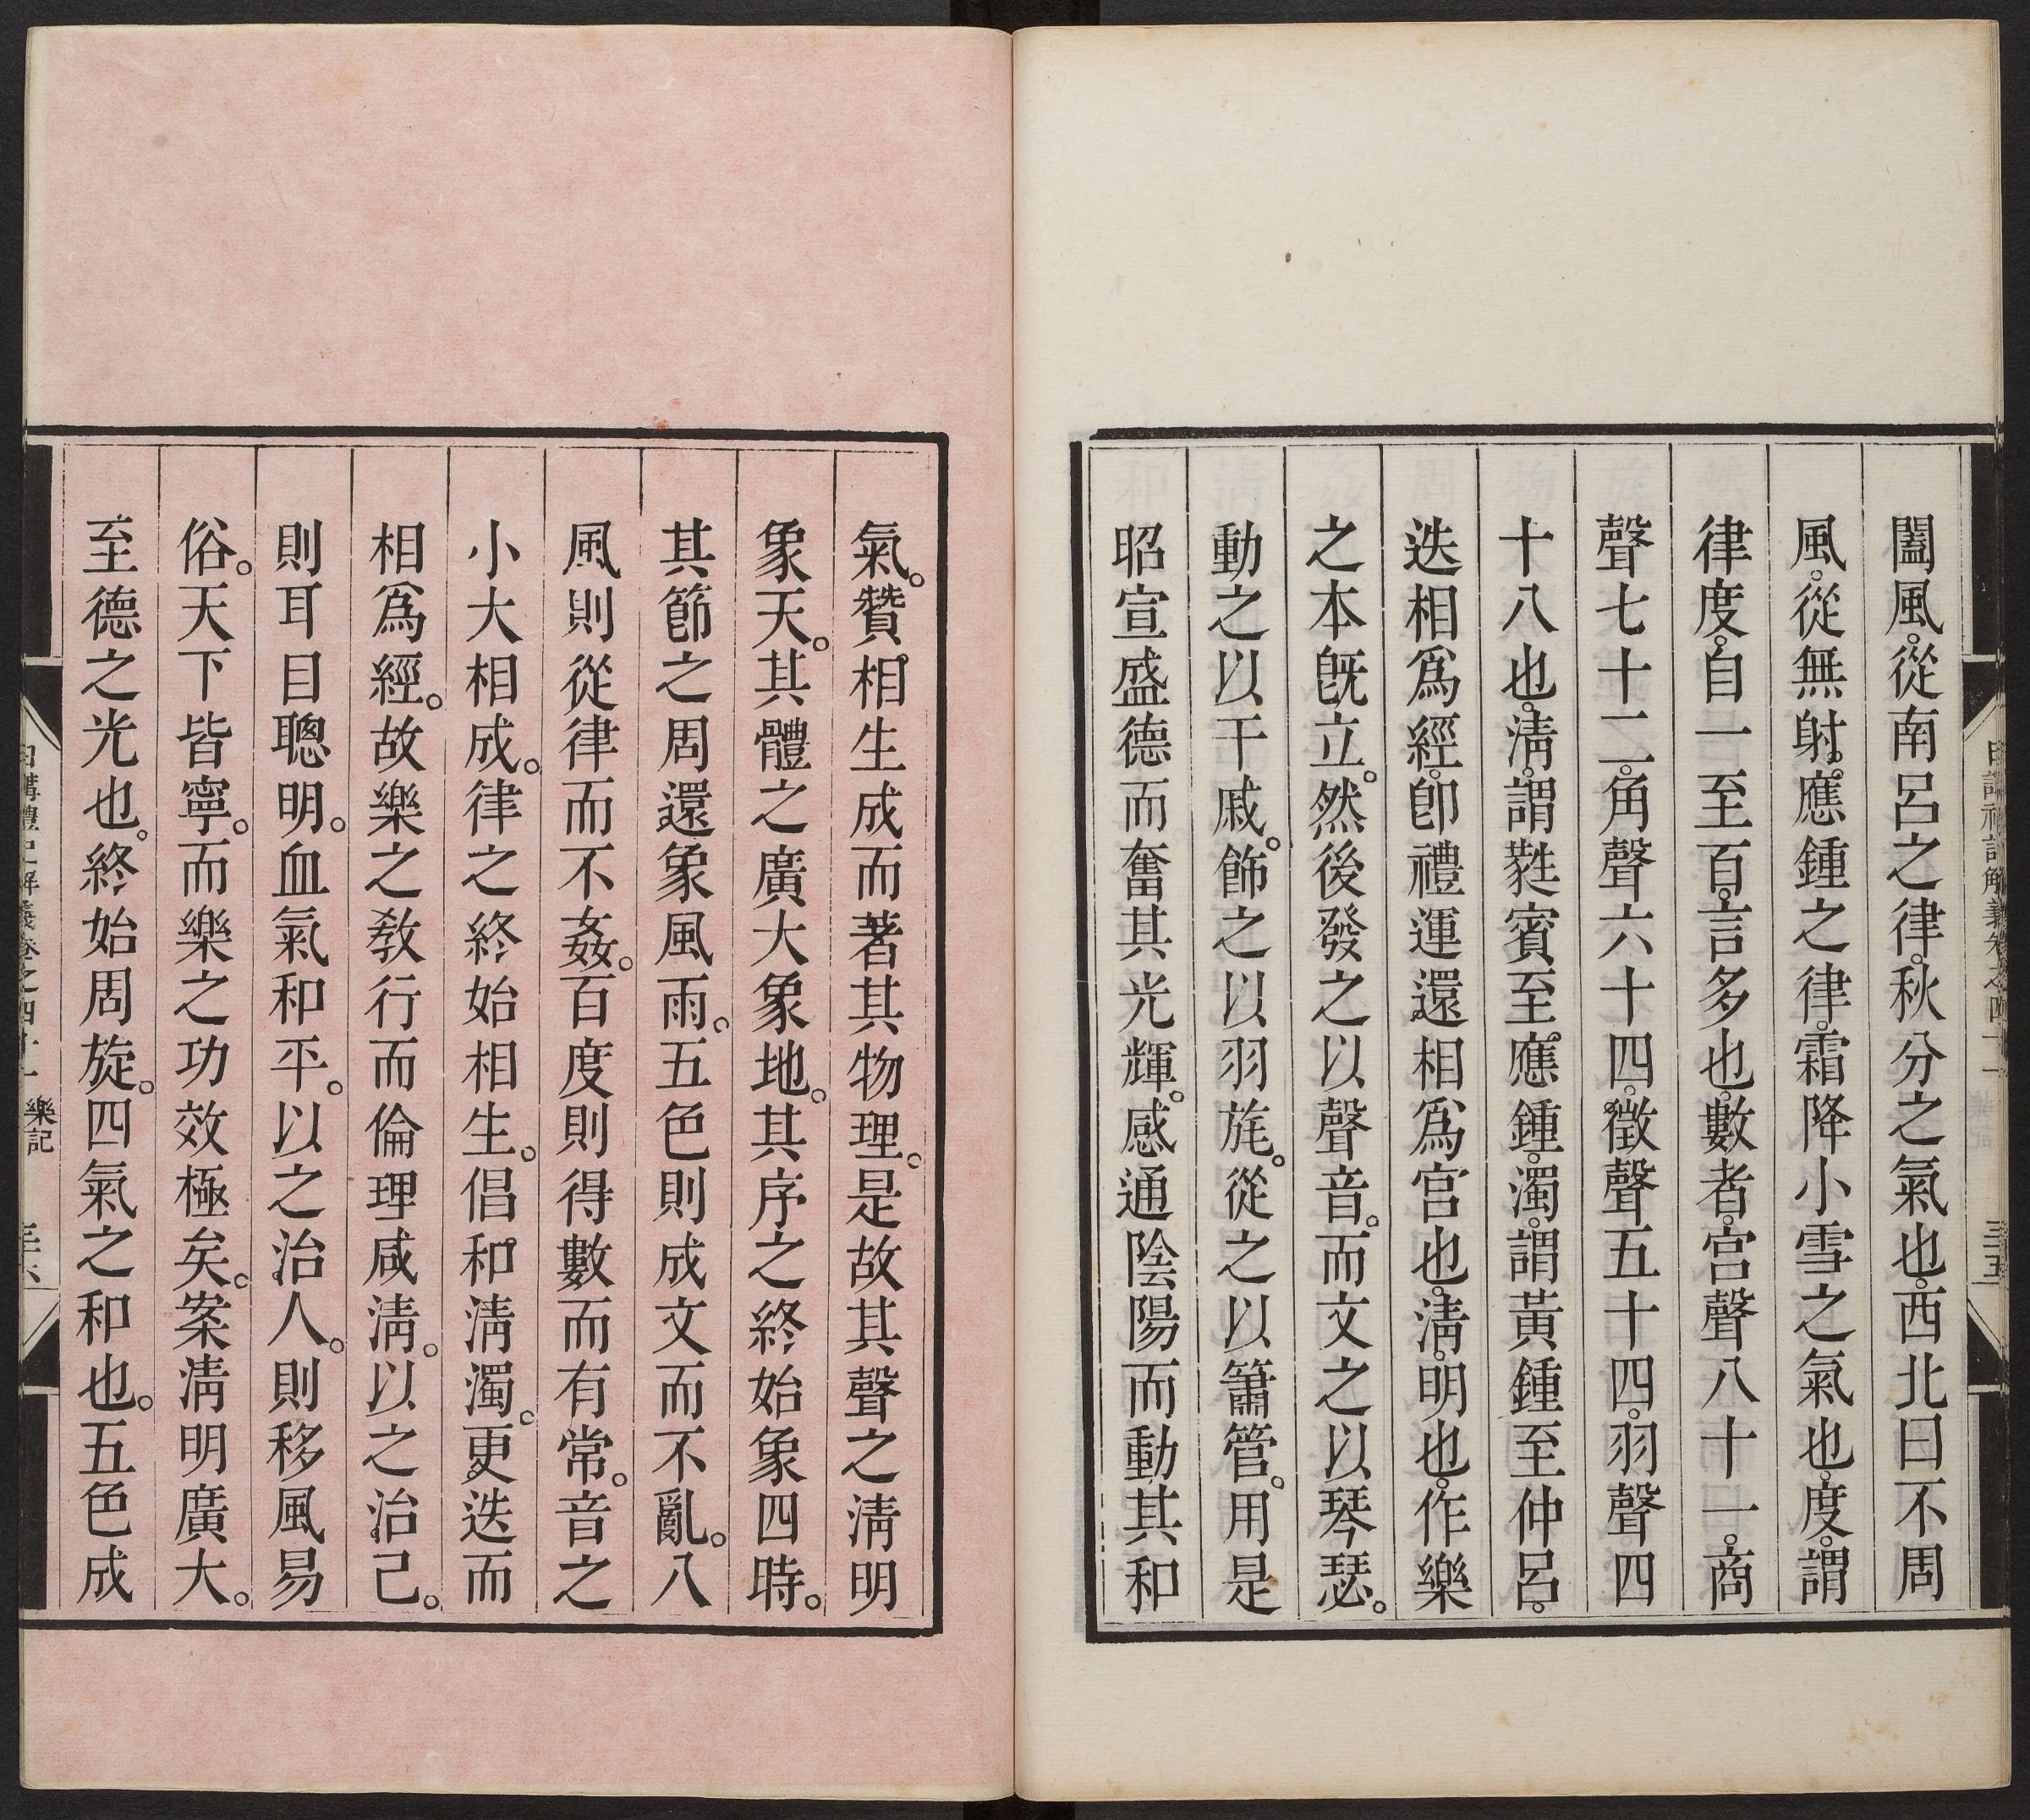 闔風。從南呂之律。秋分之氣也。西北曰不周
風。從無射。應鍾之律。霜降小雪之氣也。度。謂
律度。自一至百。言多也。數者。宮聲八十一。商
聲七十二。角聲六十四。徵聲五十四。羽聲四
十八也。淸。謂蕤賓至應鍾。濁。謂黃鍾至仲呂。
迭相爲經。卽禮運還相爲宮也。淸。明也。作樂
之本旣立。然後發之以聲音。而文之以琴瑟。
動之以干戚。飾之以羽旄。從之以簫管。用是
昭宣盛德而奮其光輝。感通陰陽而動其和
氣。贊相生成而著其物理。是故其聲之淸明
象天。其體之廣大象地。其序之終始象四時。
其節之周還象風雨。五色則成文而不亂。八
風則從律而不姦。百度則得數而有常。音之
小大相成。律之終始相生。倡和淸濁。更迭而
相爲經。故樂之教行而倫理咸淸。以之治己。
則耳目聰明。血氣和平。以之治人。則移風易
俗。天下皆寧。而樂之功效極矣。案淸明廣大。
至德之光也。終始周旋。四氣之和也。五色成
樂記